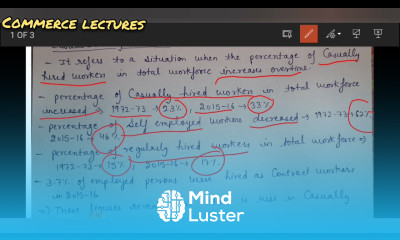 COMMERCE LECTURES
1 OF 3
- It refers to a situation when the percentage of Casually
hired worker in total workforce increases overtime.
- percentage of Casually hired worker in total workforce
increased → 1972-73 → 23%, 2015-16 → 33%
- percentage of Self employed workers decreased → 1972-73 → 62%
2015-16 → 46%
- percentage of regularly hired workers in total workforce
1972-73 → 15%, 2015-16 → 17%
- 3.7% of employed persons were hired as Contract workers
in 2015-16
These figures in Casually
Mind
Luster